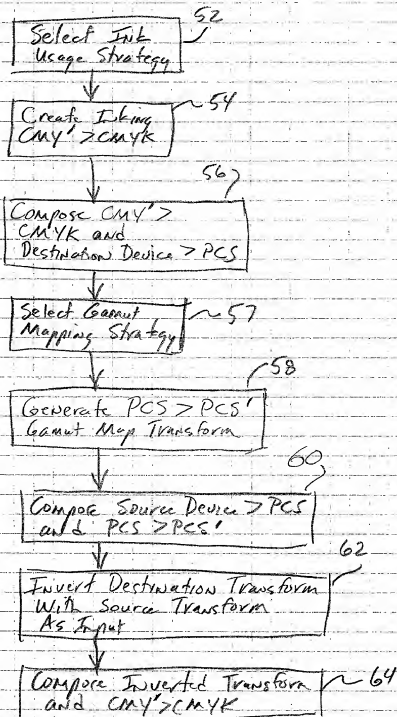 52
Select Ink
Usage Strategy
54
Create Inking
CMY' > CMYK
56
Compose CMY' >
CMYK and
Destination Device > PCS
57
Select Gamut
Mapping Strategy
58
Generate PCS > PCS'
Gamut Map Transform
60
Compose Source Device > PCS
and PCS > PCS'
62
Invert Destination Transform
With Source Transform
As Input
64
Compose Inverted Transform
and CMY' > CMYK